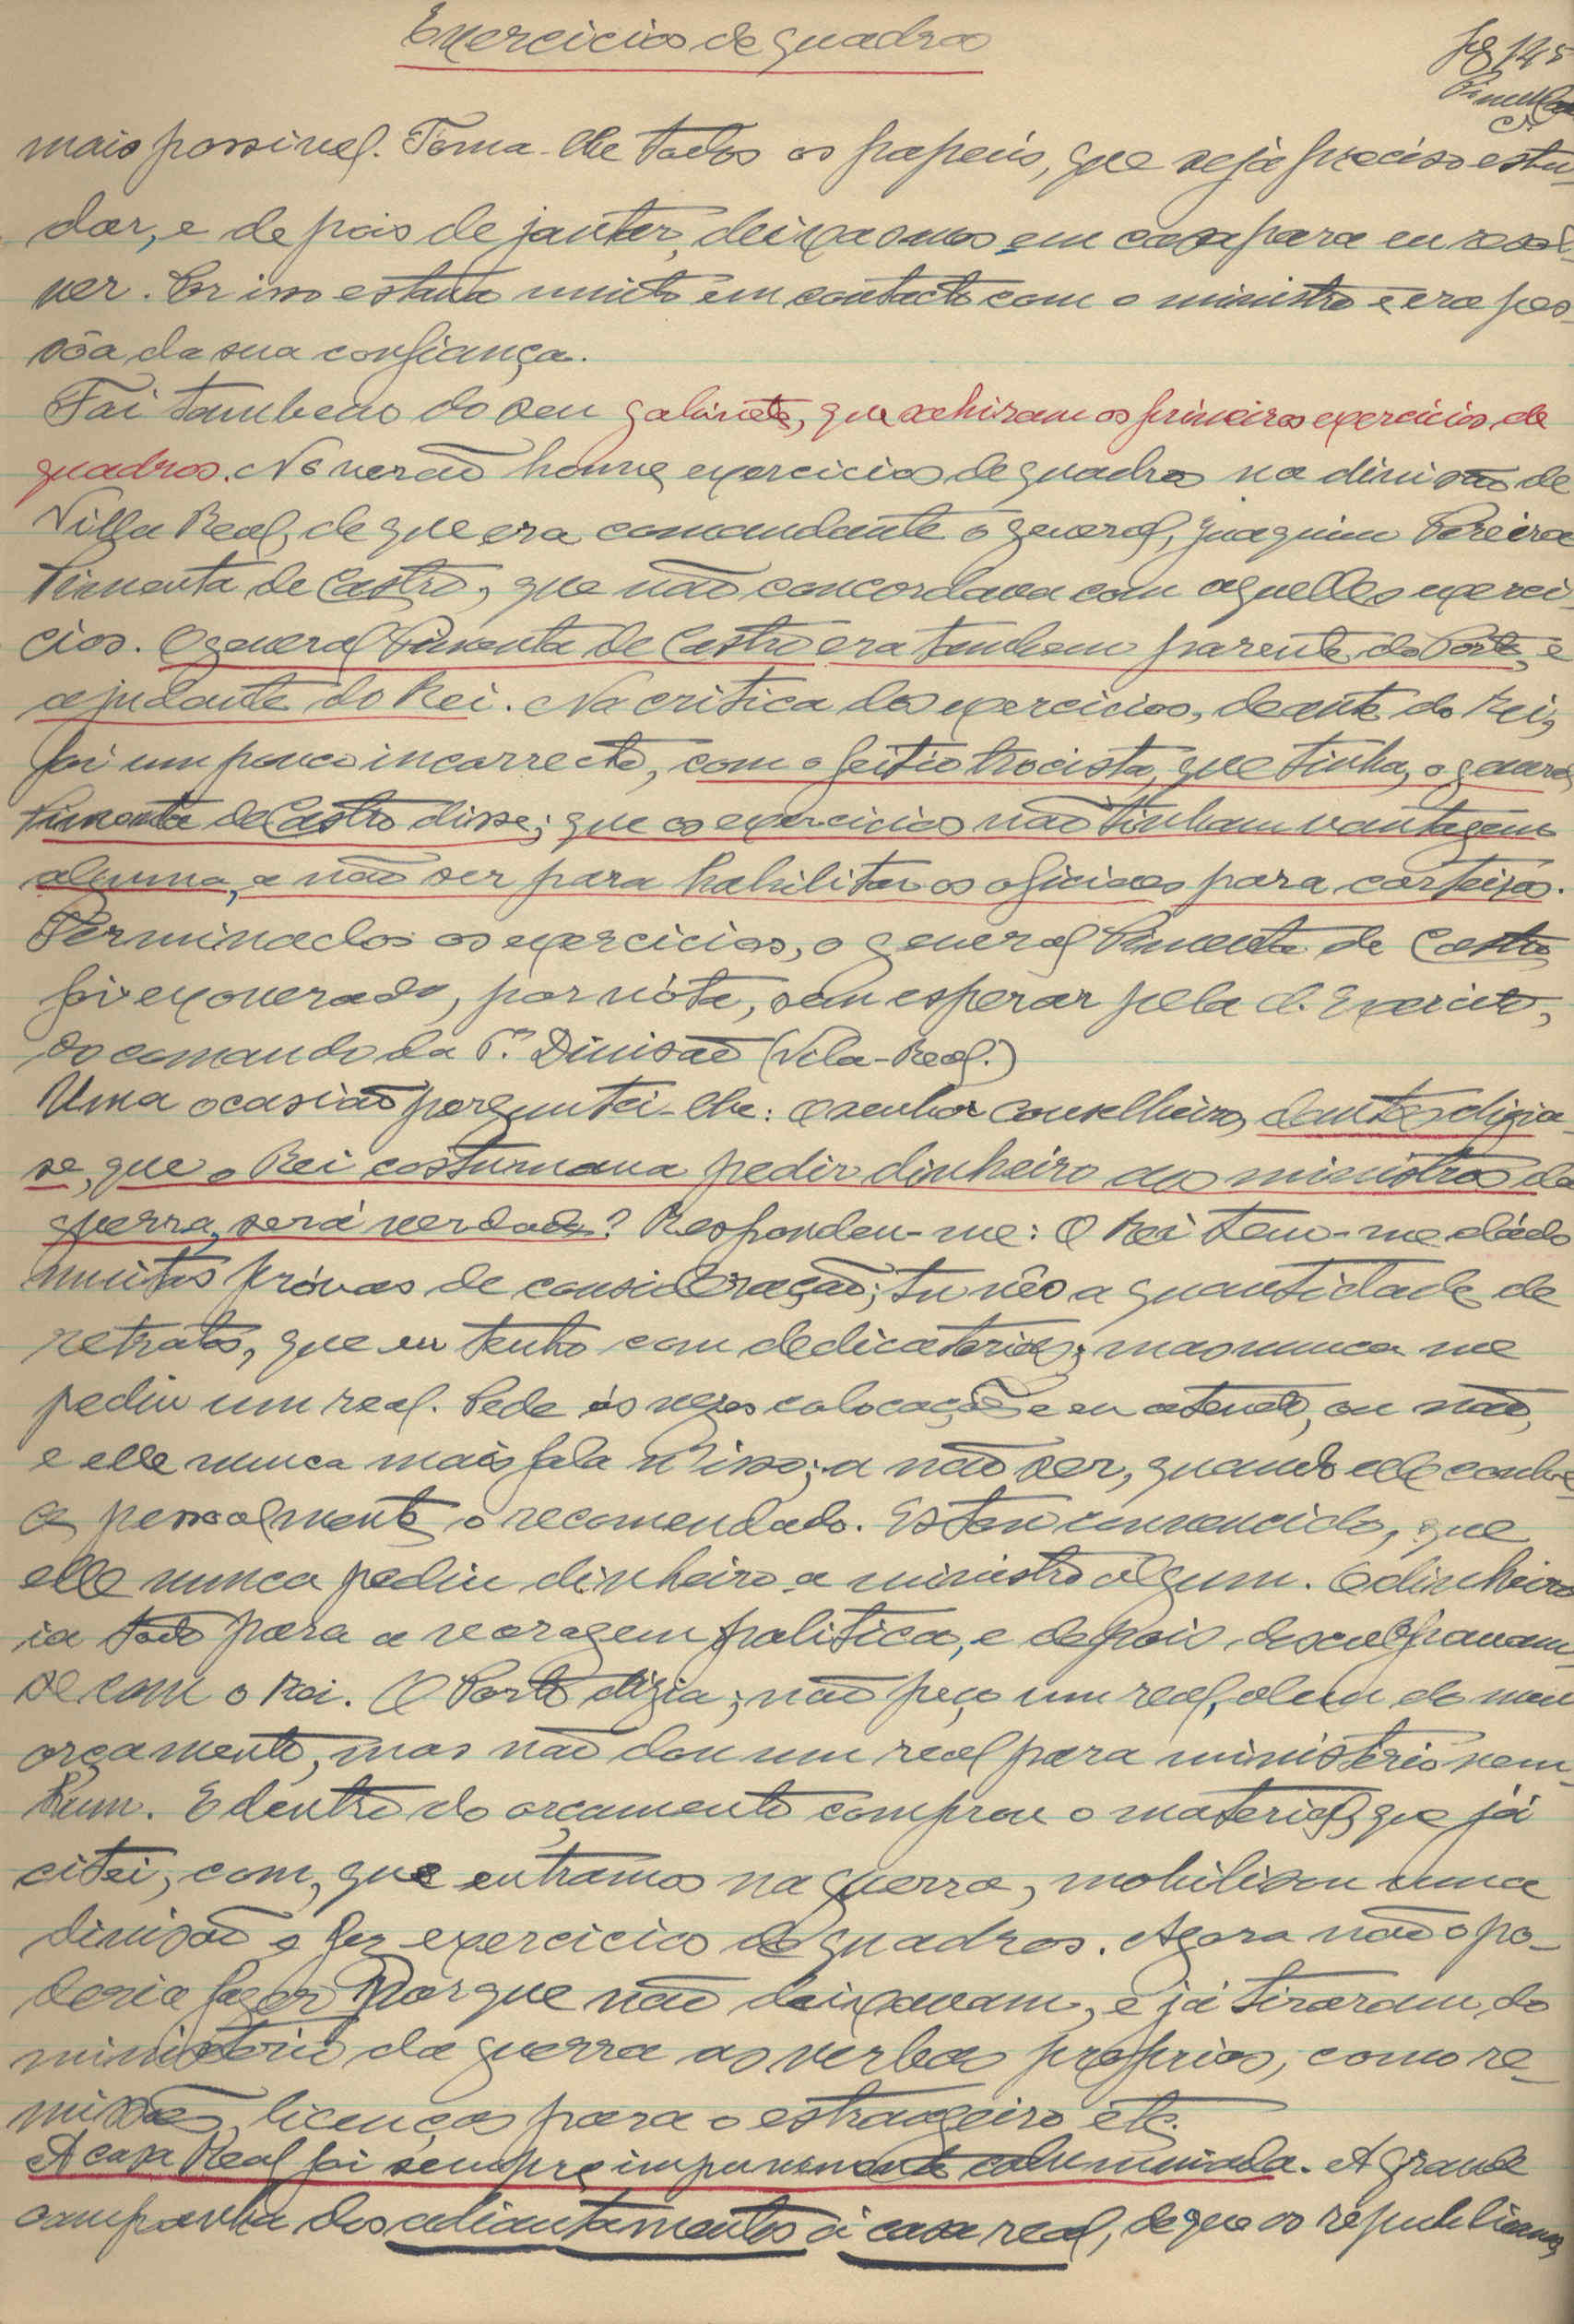 Exercicios de quadros
fg 145
Pimenta
mais possivel. Toma-lhe todos os papeis, que seja preciso estu-
dar, e depois de jantar, deixa-mos em casa para eu resol-
ver. Por isso estava muito em contacto com o ministro e era pes-
sôa da sua confiança.
Foi tambem do seu gabinete, que sahiram os primeiros exercicios de
quadros. No verão houve exercicios de quadros na divisão de
Villa Real, de que era comandante o general, Joaquim Pereira
Pimenta de Castro, que não concordava com aquelles exerci-
cios. O general Pimenta de Castro era tambem parente do Porto, e
ajudante do Rei. Na critica dos exercicios, deante do Rei,
foi um pouco incorrecto, com o feitio trocista, que tinha, o general
Pimenta de Castro disse; que os exercicios não tinham vantagem
alguma, a não ser para habilitar os oficiaes para carteiros.
Terminados os exercicios, o general Pimenta de Castro
foi exonerado, por nóta, sem esperar pela O. Exercito,
do comando da 6ª Divisão (Vila-Real.)
Uma ocasião perguntei-lhe: o senhor conselheiro, dantes dizia-
se, que o Rei costumava pedir dinheiro aos ministros da
guerra, será verdade? Respondeu-me: O Rei tem-me dádo
muitas próvas de consideração; tu vês a quantidade de
retratos, que eu tenho com dedicatorias; mas nunca me
pediu um real. Pede ás vezes colocação e eu atendo, ou não,
e elle nunca mais fala n'isso; a não ser, quando elle conhe-
ce pessoalmente o recomendado. Estou convencido, que
elle nunca pediu dinheiro a ministro algum. O dinheiro
ia todo para a voragem politica, e depois desculpavam-
se com o Rei. O Porto dizia; não peço um real, alem do meu
orçamento, mas não dou um real para ministerio nem-
hum. E dentro do orçamento comprou o material, que já
citei, com, que entramos na guerra, mobilisou uma
divisão e fez exercicios de quadros. Agora não o po-
deria fazer porque não deixavam, e já tiraram do
ministerio da guerra as verbas proprias, como re-
missões, licenças para o estrangeiro etc.
A casa Real foi sempre impunemente calumniada. A grande
campanha dos adiantamentos á casa real, de que os republicanos